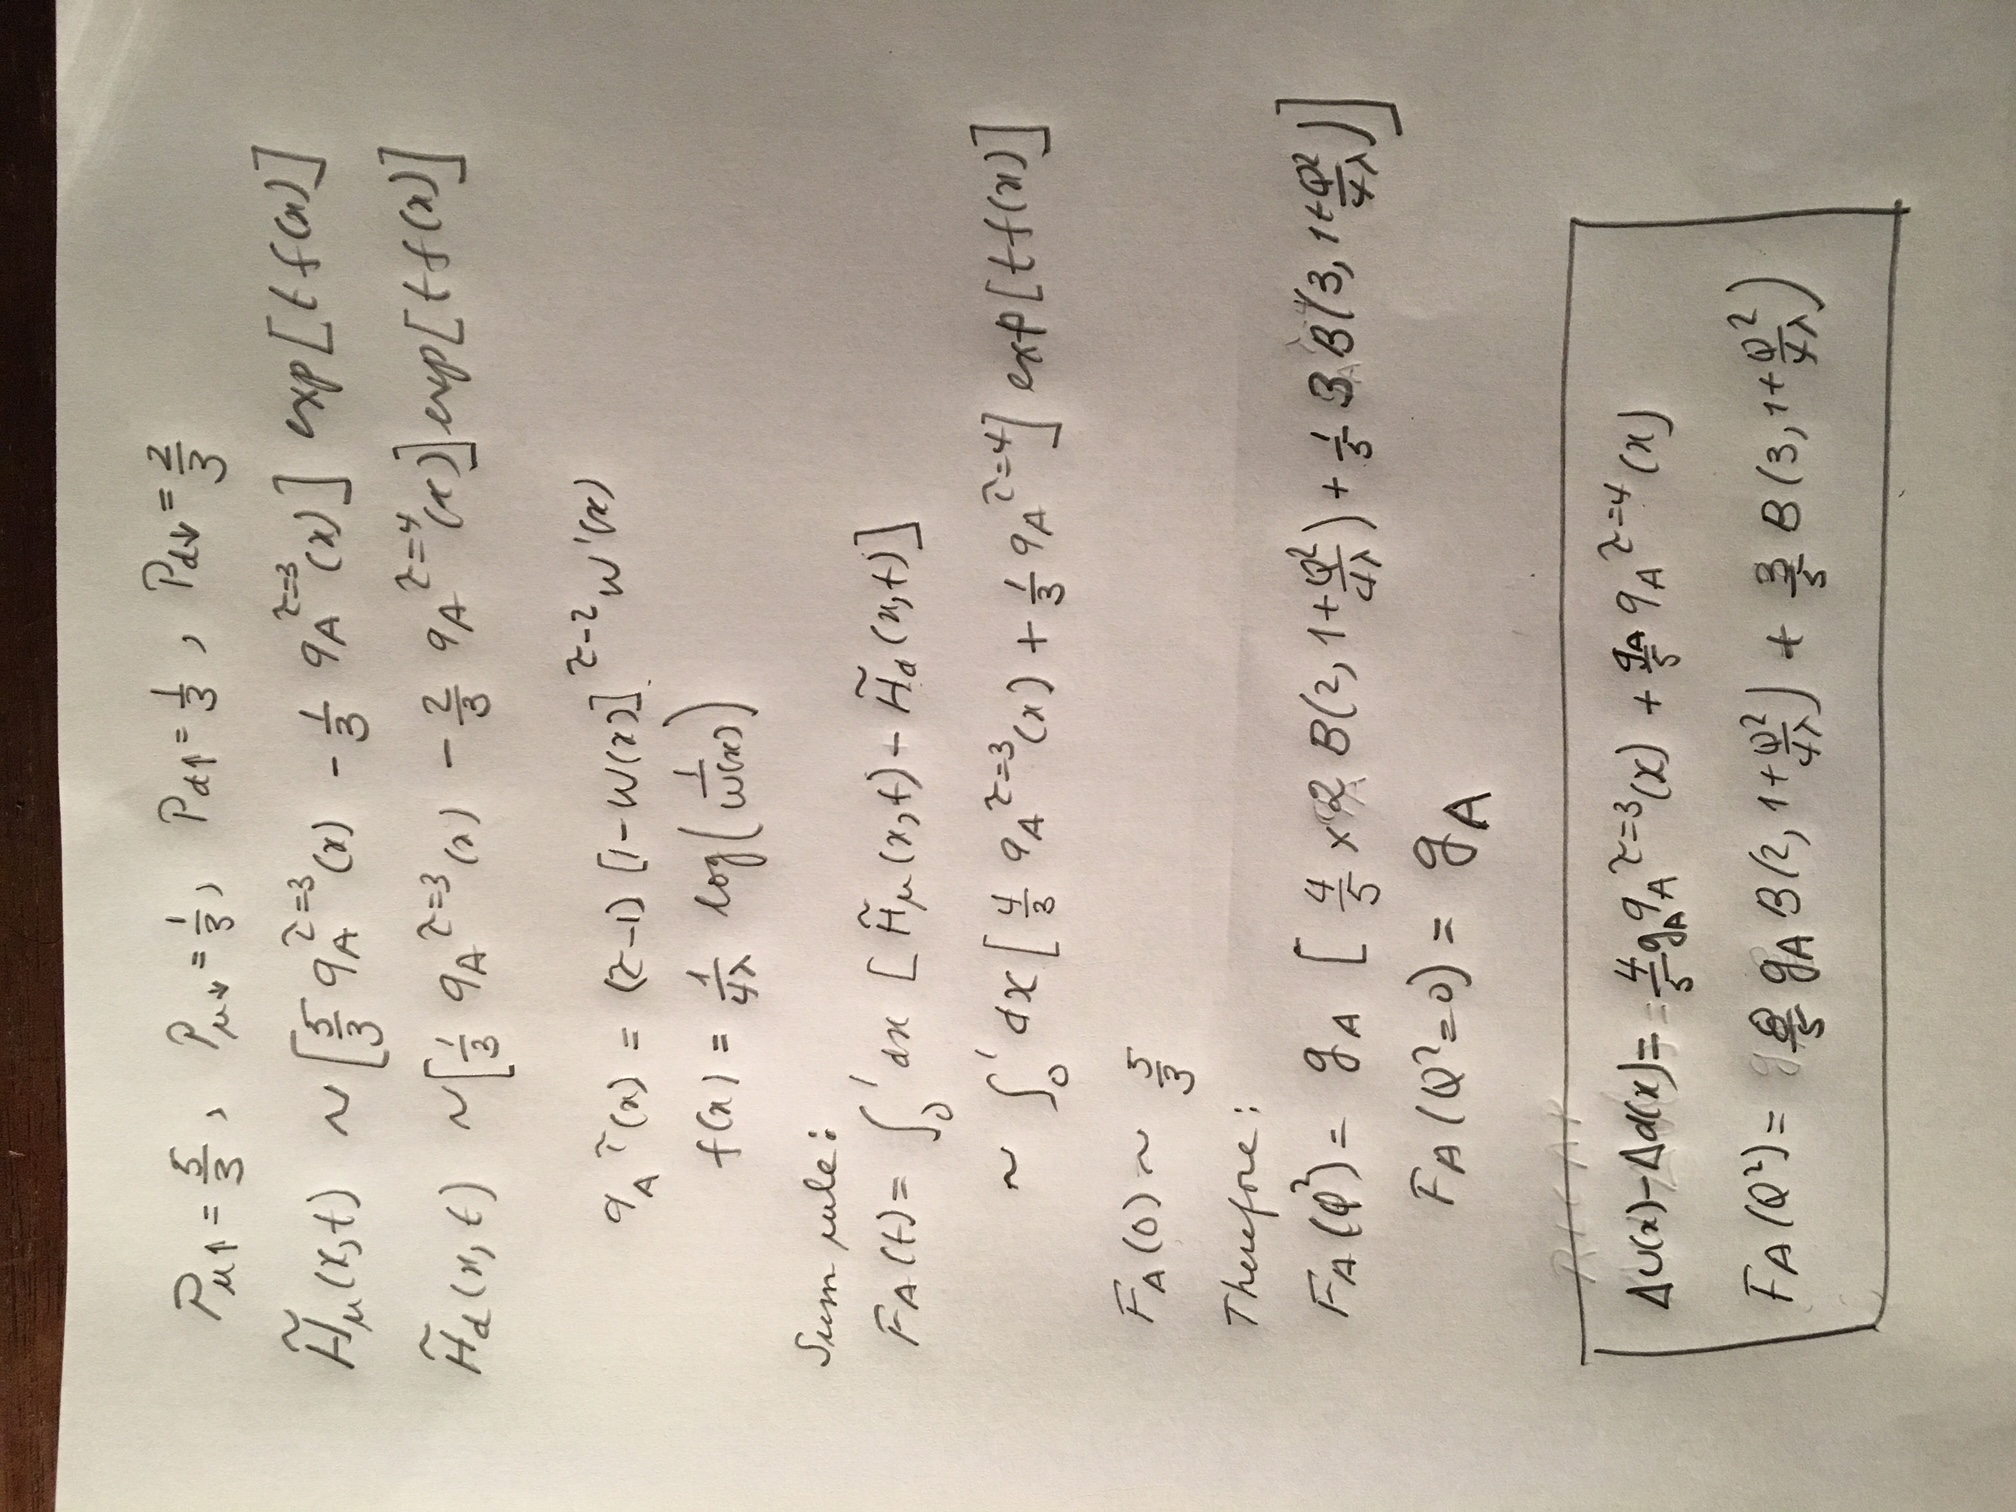 P_{u↑} = 5/3 , P_{u↓} = 1/3 , P_{d↑} = 1/3 , P_{d↓} = 2/3
H̃_u(x,t) ~ [5/3 q_A^{τ=3}(x) - 1/3 q_A^{τ=3}(x)] exp[t f(x)]
H̃_d(x,t) ~ [1/3 q_A^{τ=3}(x) - 2/3 q_A^{τ=4}(x)] exp[t f(x)]
q_A^τ(x) = (τ-1) [1-w(x)]^{τ-2} w'(x)
f(x) = 1/4λ log(1/w(x))
Sum rule:
F_A(t) = ∫_0^1 dx [H̃_u(x,t) - H̃_d(x,t)]
~ ∫_0^1 dx [4/3 q_A^{τ=3}(x) + 1/3 q_A^{τ=4}] exp[t f(x)]
F_A(0) ~ 5/3
Therefore:
F_A(Q²) = g_A [4/5 × 2 B(2, 1+Q²/4λ) + 1/5 3 B(3, 1+Q²/4λ)]
F_A(Q²=0) = g_A
RECAP
Δu(x)-Δd(x) = 4/5 g_A q_A^{τ=3}(x) + g_A/5 q_A^{τ=4}(x)
F_A(Q²) = 8/5 g_A B(2, 1+Q²/4λ) + 3/5 B(3, 1+Q²/4λ)